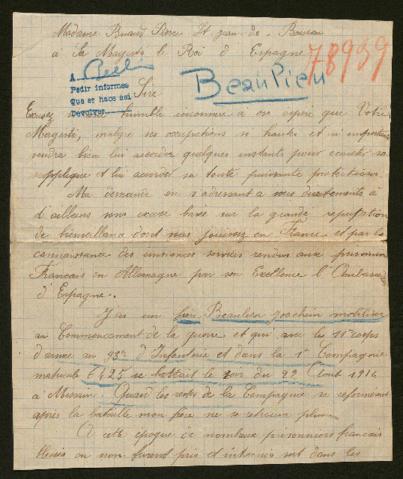 Madame Renaud Pierre St Jean de
à Sa Majesté le Roi d'Espagne
78939
A
Pedir informes
Que se hace así
Devolver
Beaulieu
Sire
Excusez humble inconnue a en espoir que Votre
Majesté, malgré ses occupations si hautes et si importantes
voudra bien lui accorder quelques instants pour écouter sa
supplique et lui accorder sa toute puissante protection.
Ma demande en s'adressant à vous directement a
d'ailleurs une excuse basée sur la grande réputation
de bienveillance dont vous jouissez en France et par la
connaissance des immenses services rendus aux prisonniers
Français en Allemagne par son Excellence l'Ambassa
d'Espagne.
J'ai un frère Beaulieu Joachim mobilisé
au Commencement de la guerre et qui avec les 11e corps
d'armée au 93e d'Infanterie et dans la 1e Compagnie
matricule se battait le soir du 22 Août 1914
à Messin. Quand les restes de la Compagnie se reformèrent
après la bataille mon frère ne se retrouva plus.
A cette époque de nombreux prisonniers français
blessés ou non furent pris et internés soit dans les